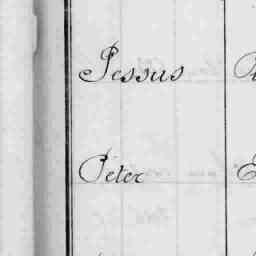 Jessus
Peter